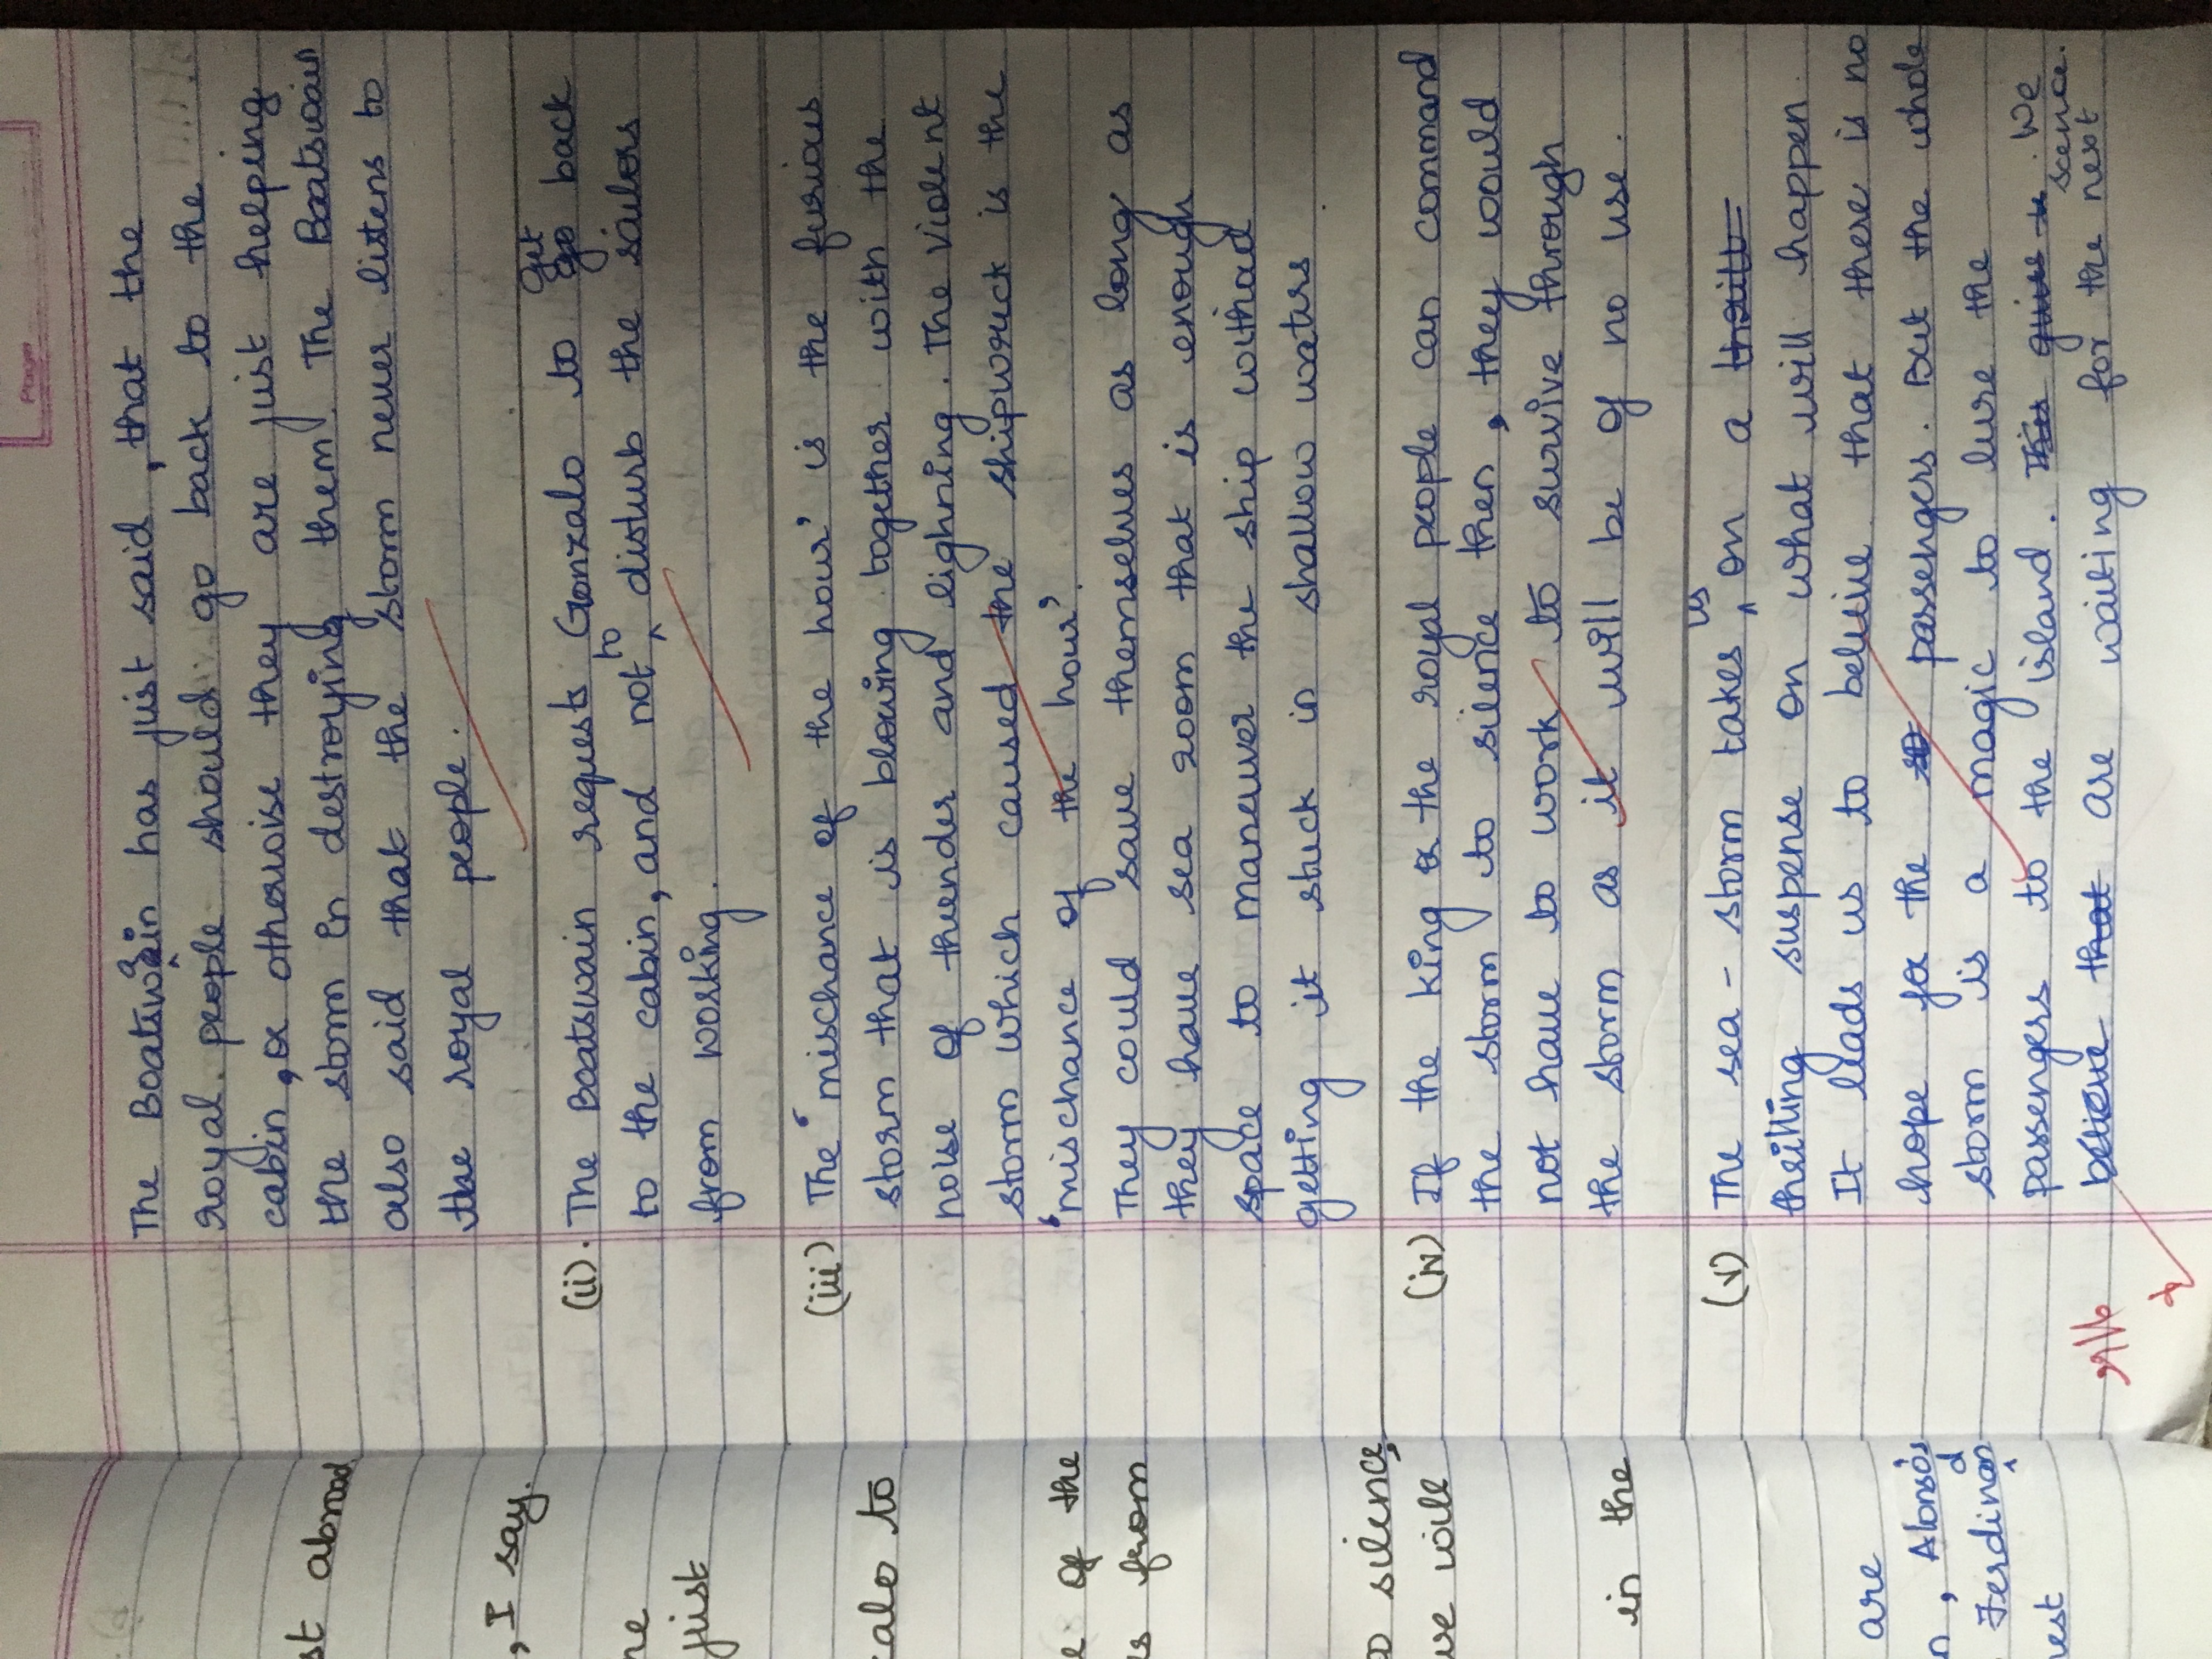 Page
st abroad
, I say.
ne
just
zalo to
e of the
s from
silence,
we will
in the
are
n, Alonso's
Ferdinand
rest
The Boatswain has just said, that the
royal people should go back to the
cabin, or otherwise they are just helping
the storm in destroying them. The Boatswain
also said that the storm never listens to
the royal people.
(ii). The Boatswain requests Gonzalo to get back
to the cabin, and not to disturb the sailors
from working.
(iii) The 'mischance of the hour' is the furious
storm that is blowing together with the
noise of thunder and lighning. The violent
storm which caused the shipwreck is the
'mischance of the hour'.
They could save themselves as long as
they have sea room that is enough
space to maneuver the ship without
getting it stuck in shallow waters
(iv) If the king or the royal people can command
the storm to silence then, they would
not have to work to survive through
the storm as it will be of no use.
(v) The sea-storm takes us on a thrill
thrilling suspense on what will happen.
It leads us to believe that there is no
hope for the so passengers. But the whole
storm is a magic to lure the
passengers to the island. This gives . We
believe that are waiting for the next scence.